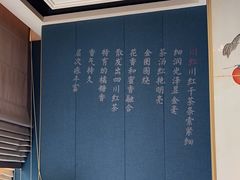 川红川红干茶条索紧细
细润光泽显金毫
茶汤红艳明亮
金圈围绕
花香和蜜香融合
散发出四川红茶
特有的橘糖香
香气持久
层次感丰富